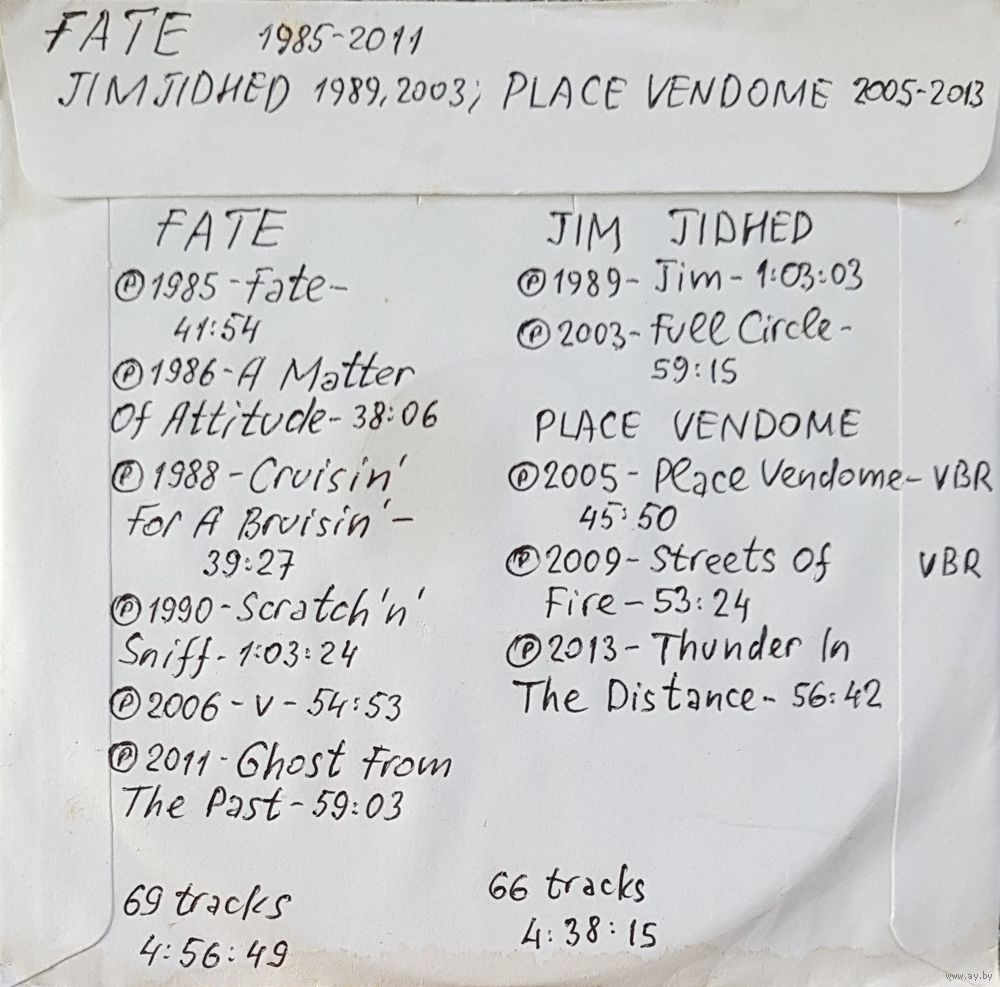 FATE 1985-2011
JIM JIDHED 1989, 2003; PLACE VENDOME 2005-2013
FATE
Ⓟ1985-Fate-
41:54
Ⓟ1986-A Matter
Of Attitude-38:06
Ⓟ1988-Cruisin'
For A Bruisin'-
39:27
Ⓟ1990-Scratch'n'
Sniff-1:03:24
Ⓟ2006-V-54:53
Ⓟ2011-Ghost From
The Past-59:03
69 tracks
4:56:49
JIM JIDHED
Ⓟ1989-Jim-1:03:03
Ⓟ2003-Full Circle-
59:15
PLACE VENDOME
Ⓟ2005-Place Vendome-VBR
45:50
Ⓟ2009-Streets Of VBR
Fire-53:24
Ⓟ2013-Thunder In
The Distance-56:42
66 tracks
4:38:15
www.ay.by